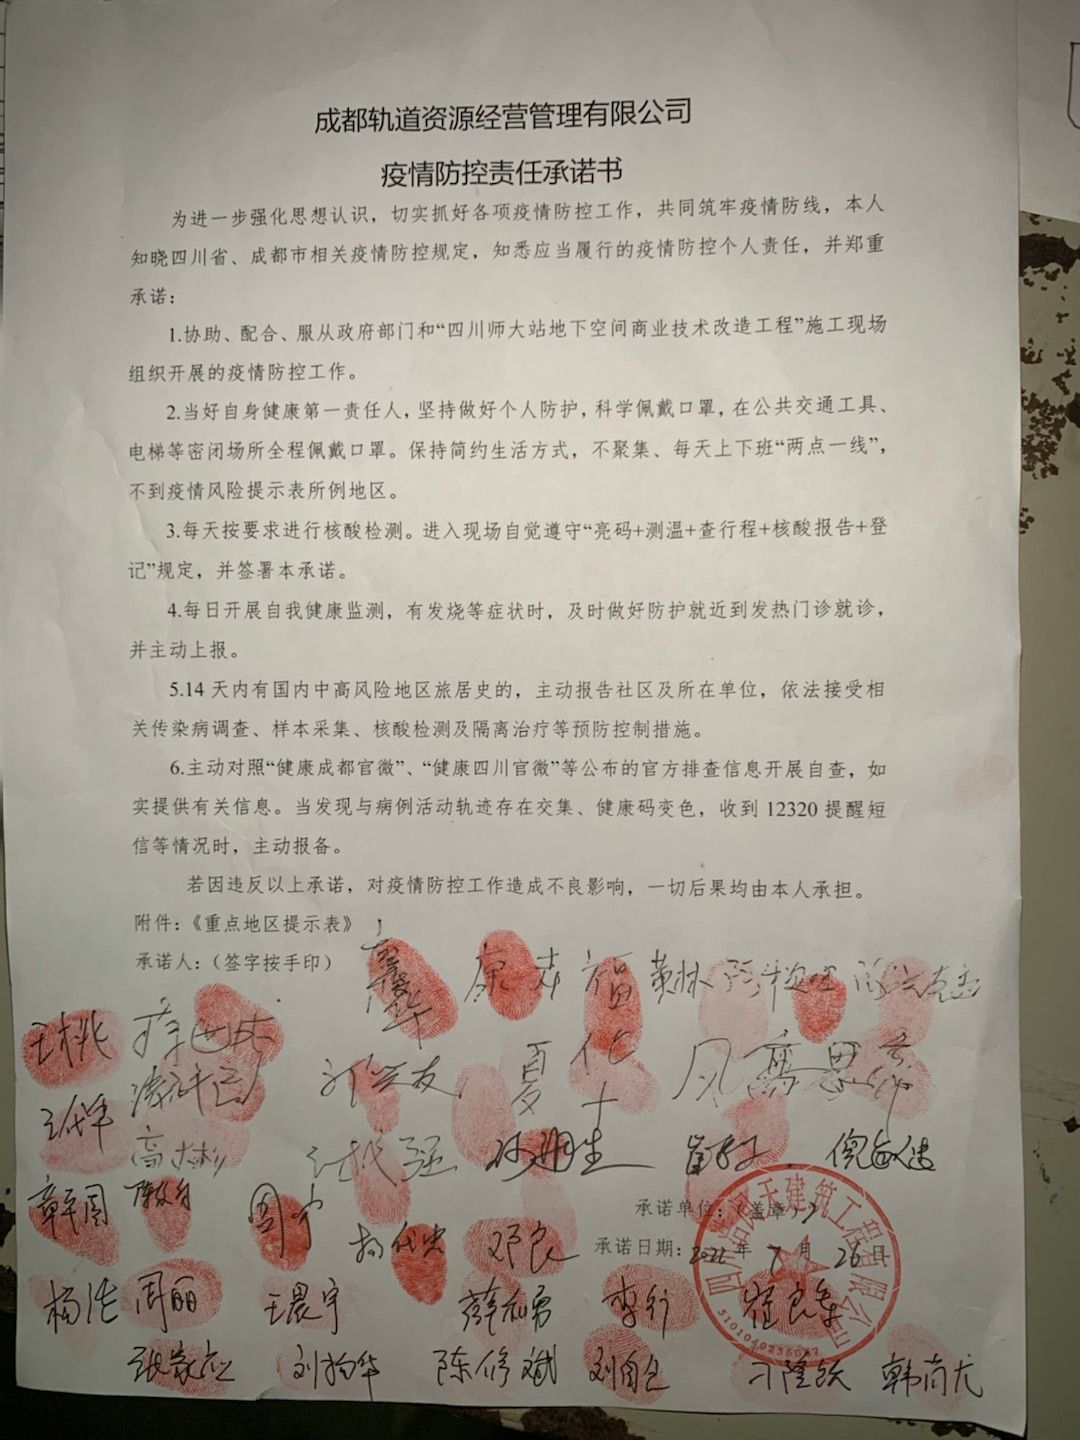 成都轨道资源经营管理有限公司
疫情防控责任承诺书
为进一步强化思想认识，切实抓好各项疫情防控工作，共同筑牢疫情防线，本人
知晓四川省、成都市相关疫情防控规定，知悉应当履行的疫情防控个人责任，并郑重
承诺：
1.协助、配合、服从政府部门和“四川师大站地下空间商业技术改造工程”施工现场
组织开展的疫情防控工作。
2.当好自身健康第一责任人，坚持做好个人防护，科学佩戴口罩，在公共交通工具、
电梯等密闭场所全程佩戴口罩。保持简约生活方式，不聚集、每天上下班“两点一线”，
不到疫情风险提示表所例地区。
3.每天按要求进行核酸检测。进入现场自觉遵守“亮码+测温+查行程+核酸报告+登
记”规定，并签署本承诺。
4.每日开展自我健康监测，有发烧等症状时，及时做好防护就近到发热门诊就诊，
并主动上报。
5.14 天内有国内中高风险地区旅居史的，主动报告社区及所在单位，依法接受相
关传染病调查、样本采集、核酸检测及隔离治疗等预防控制措施。
6.主动对照“健康成都官微”、“健康四川官微”等公布的官方排查信息开展自查，如
实提供有关信息。当发现与病例活动轨迹存在交集、健康码变色，收到 12320 提醒短
信等情况时，主动报备。
若因违反以上承诺，对疫情防控工作造成不良影响，一切后果均由本人承担。
附件：《重点地区提示表》
承诺人：（签字按手印）
康 福 黄林
王桃
夏 化 风
高 强
章平国 周
承诺单位：（盖章）
邓良 承诺日期：2022年 7月 26日
杨浩 周丽 王晨宇 薛和勇 李行 崔良奎
张家应 刘杨华 陈修斌 刘自立 刁隆跃 韩尚尤
建筑工程有限公司